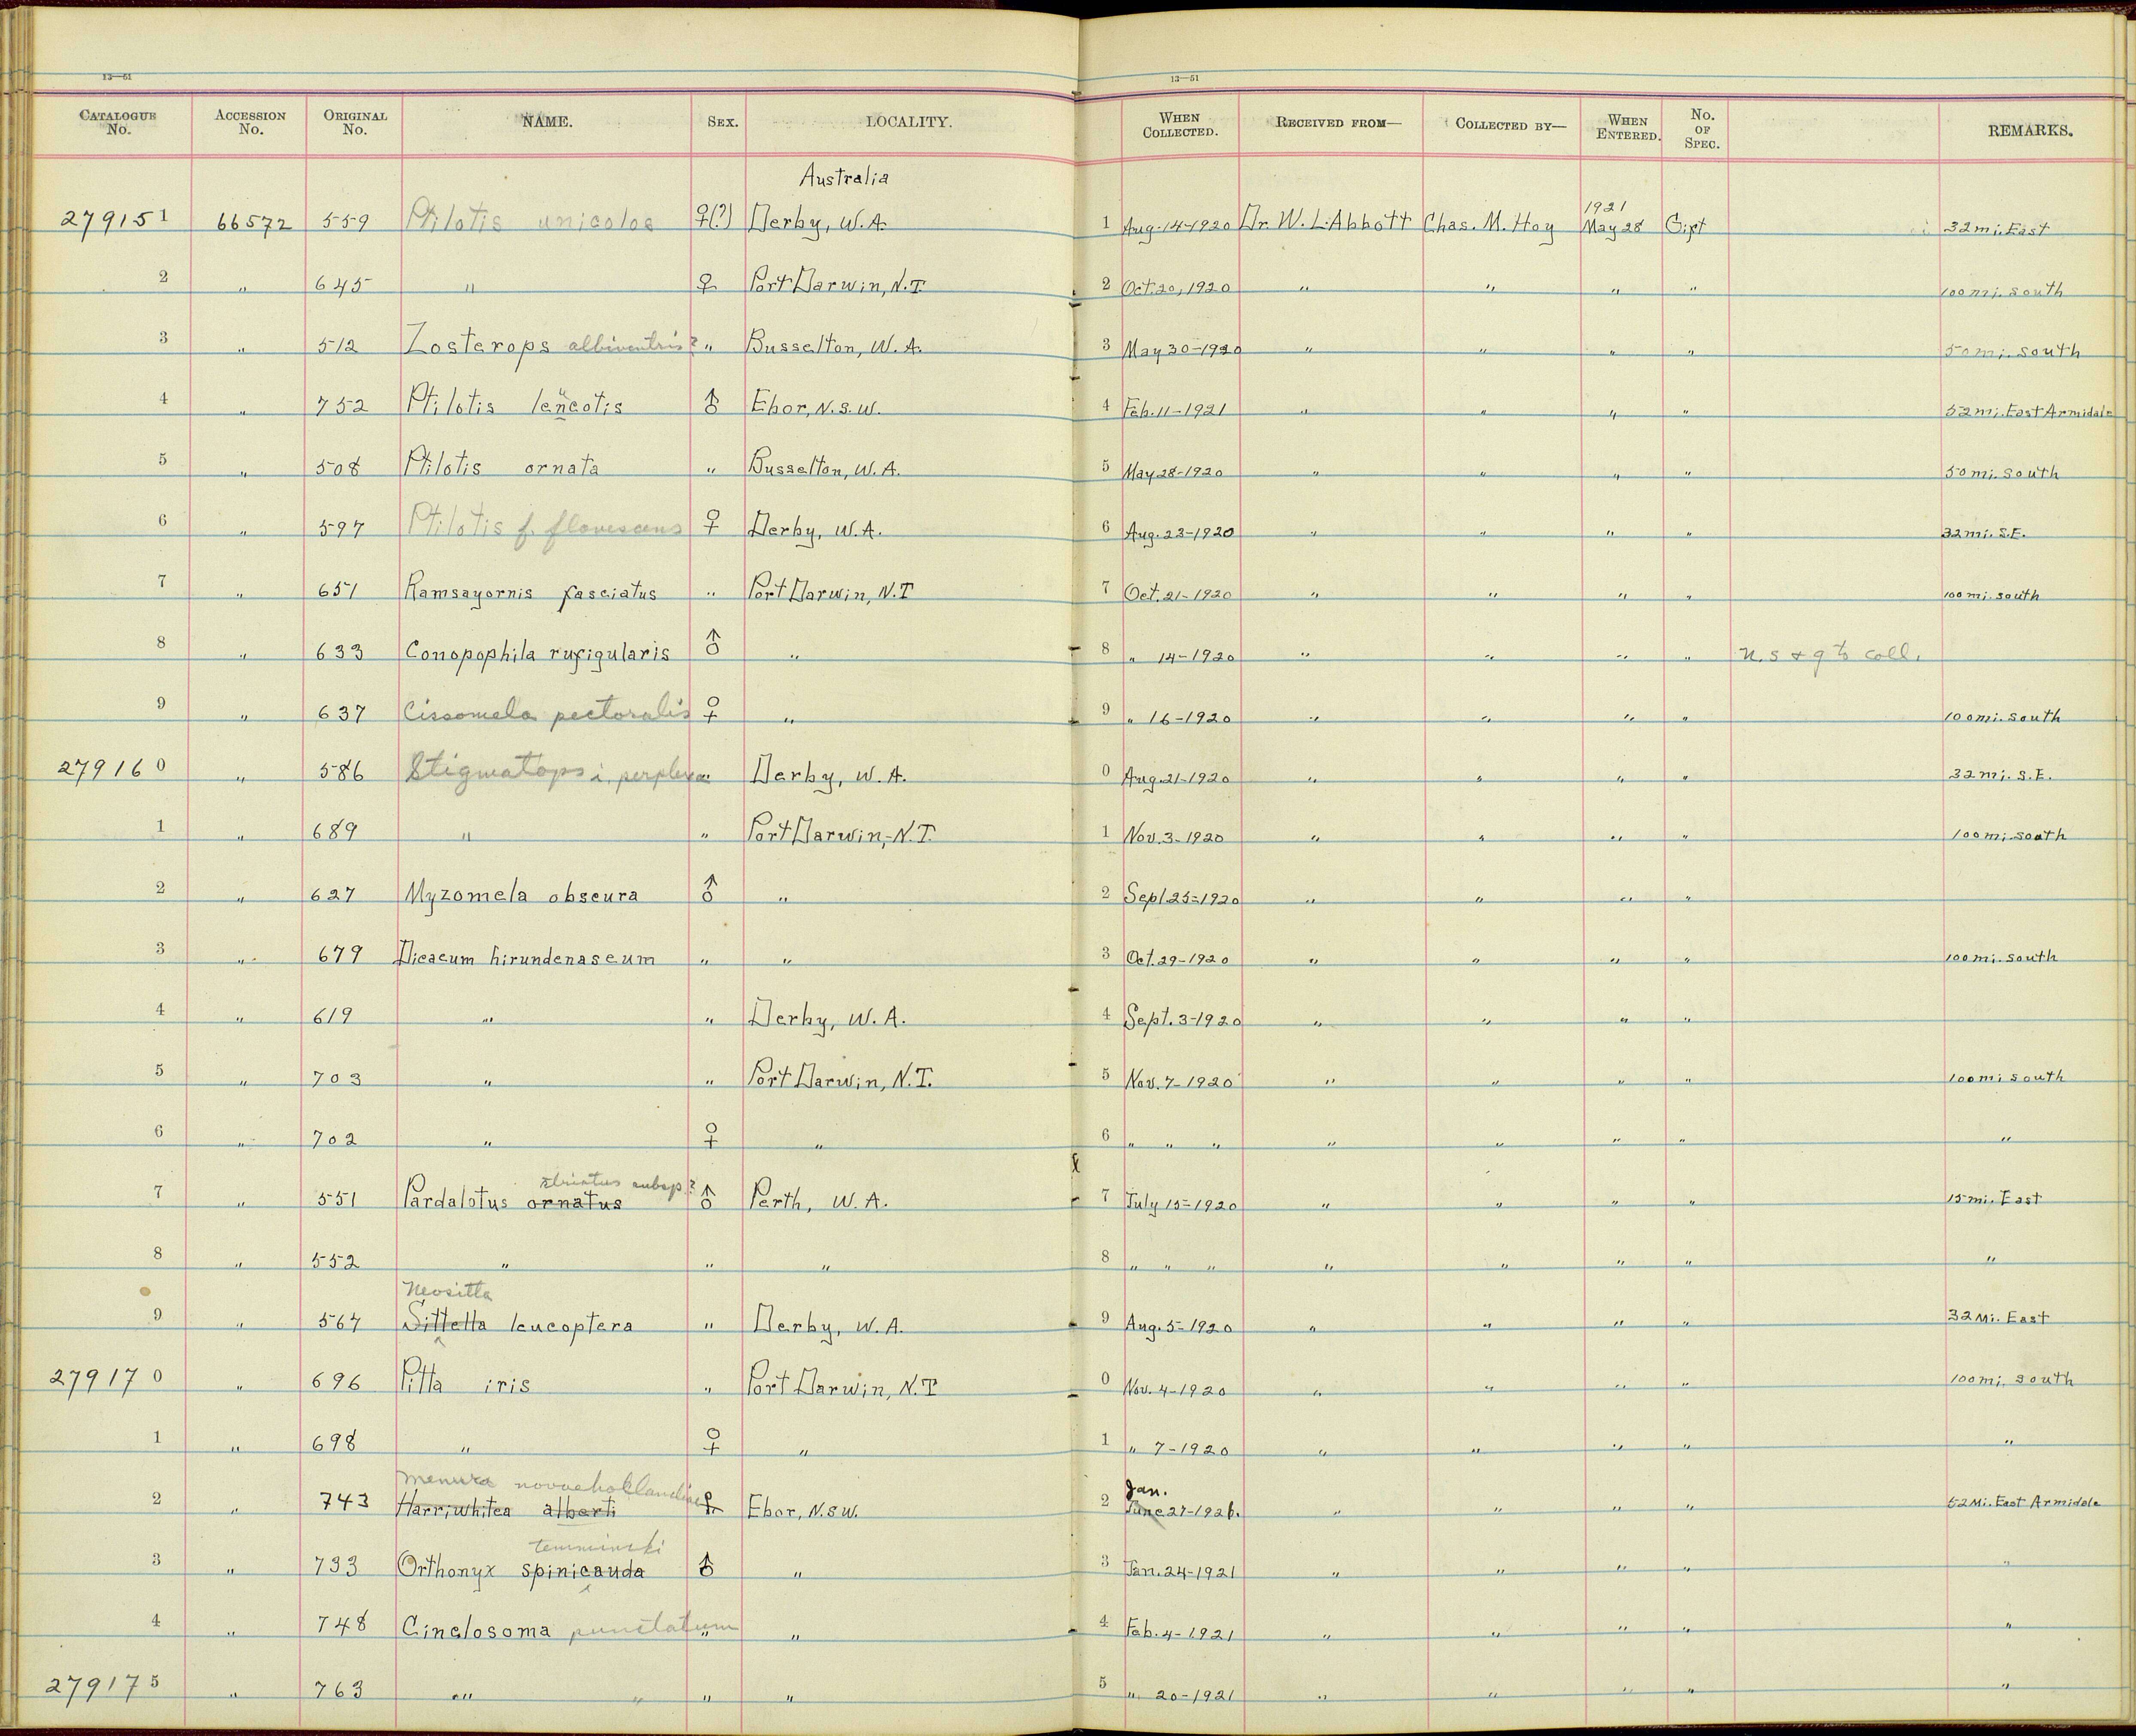 13—51 13—51
CATALOGUE No. ACCESSION No. ORIGINAL No. NAME. SEX. LOCALITY. WHEN COLLECTED. RECEIVED FROM— COLLECTED BY— WHEN ENTERED. No. OF SPEC. REMARKS.
Australia
279151 66572 559 Ptilotis unicolor ♀(?) Derby, W.A. 1 Aug. 14-1920 Dr. W. L. Abbott Chas. M. Hoy 1921 May 28 Gift 32 mi. East
2 " 645 " ♀ Port Darwin, N.T. 2 Oct. 20, 1920 " " " " 100 mi. south
3 " 512 Zosterops albiventris? " Busselton, W.A. 3 May 30-1920 " " " " 50 mi. south
4 " 752 Ptilotis leucotis ♂ Ebor, N.S.W. 4 Feb. 11-1921 " " " " 52 mi. East Armidale
5 " 508 Ptilotis ornata " Busselton, W.A. 5 May 28-1920 " " " " 50 mi. south
6 " 597 Ptilotis f. flavescens ♀ Derby, W.A. 6 Aug. 23-1920 " " " " 32 mi. S.E.
7 " 651 Ramsayornis fasciatus " Port Darwin, N.T 7 Oct. 21-1920 " " " " 100 mi. south
8 " 633 Conopophila rufigularis ♂ " 8 " 14-1920 " " " " n. s & g to coll.
9 " 637 Cissomela pectoralis ♀ " 9 " 16-1920 " " " " 100 mi. south
279160 " 586 Stigmatops i. perplexa " Derby, W.A. 0 Aug. 21-1920 " " " " 32 mi. S.E.
1 " 689 " " Port Darwin, N.T. 1 Nov. 3-1920 " " " " 100 mi. south
2 " 627 Myzomela obscura ♂ " 2 Sept. 25-1920 " " " "
3 " 679 Dicaeum hirundenaseum " " 3 Oct. 29-1920 " " " " 100 mi. south
4 " 619 " " Derby, W.A. 4 Sept. 3-1920 " " " "
5 " 703 " " Port Darwin, N.T. 5 Nov. 7-1920 " " " " 100 mi south
6 " 702 " ♀ " 6 " " " " " " " "
striatus subsp?
7 " 551 Pardalotus ornatus ♂ Perth, W.A. 7 July 15-1920 " " " " 15 mi, East
8 " 552 " " " 8 " " " " " " " "
Neositta
9 " 567 Sittella leucoptera " Derby, W.A. 9 Aug. 5-1920 " " " " 32 Mi. East
279170 " 696 Pitta iris " Port Darwin, N.T 0 Nov. 4-1920 " " " " 100 mi. south
1 " 698 " ♀ " 1 " 7-1920 " " " " "
menura novaehollandiae Jan.
2 " 743 Harriwhitea alberti ♀ Ebor, N.S.W. 2 June 27-1926. " " " " 52 Mi. East Armidale
temmincki
3 " 733 Orthonyx spinicauda ♂ " 3 Jan. 24-1921 " " " " "
4 " 748 Cinclosoma punctatum " " 4 Feb. 4-1921 " " " " "
279175 " 763 " " " " 5 " 20-1921 " " " " "